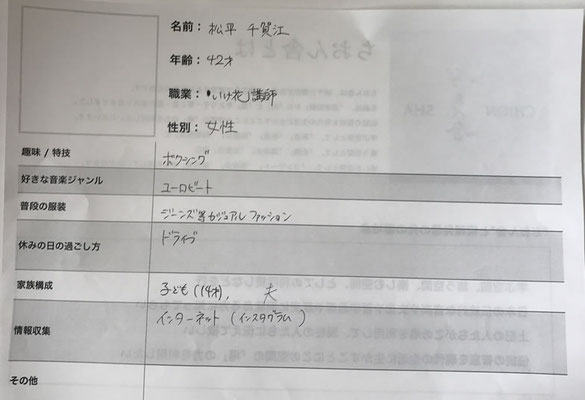 名前： 松平 千賀江
年齢： 42才
職業： ・いけ花講師
性別： 女性
趣味 / 特技 ボクシング
好きな音楽ジャンル ユーロビート
普段の服装 ジーンズ等カジュアル ファッション
休みの日の過ごし方 ドライブ
家族構成 子ども(14才)、 夫
情報収集 インターネット (インスタグラム)
その他